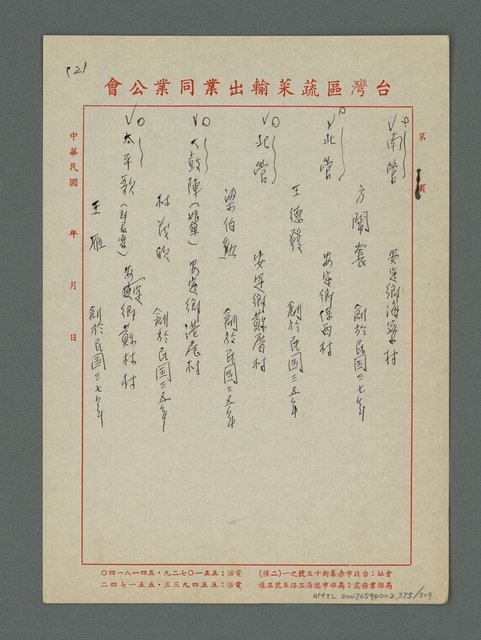 (2)
會公業同業出輸菜蔬區灣台
第 頁
南管 安定鄉海寮村
方開 創於民國三七年
北管 安定鄉保西村
王德發 創於民國三五年
北管 安定鄉蘇厝村
梁伯 創於民國三五年
大鼓陣 安定鄉港尾村
林茂 創於民國三五年
太平歌 安定鄉蘇林村
王雁 創於民國三七年
中華民國 年 月 日
會址：台北市赤峯街十三號之一(二樓) 電話：五五一〇七二九・五四一八一四〇
高雄業務處：高雄市臨海三路五號三樓 電話：五五四九三三・五五一七四二
NMTL 20070590002.375/509